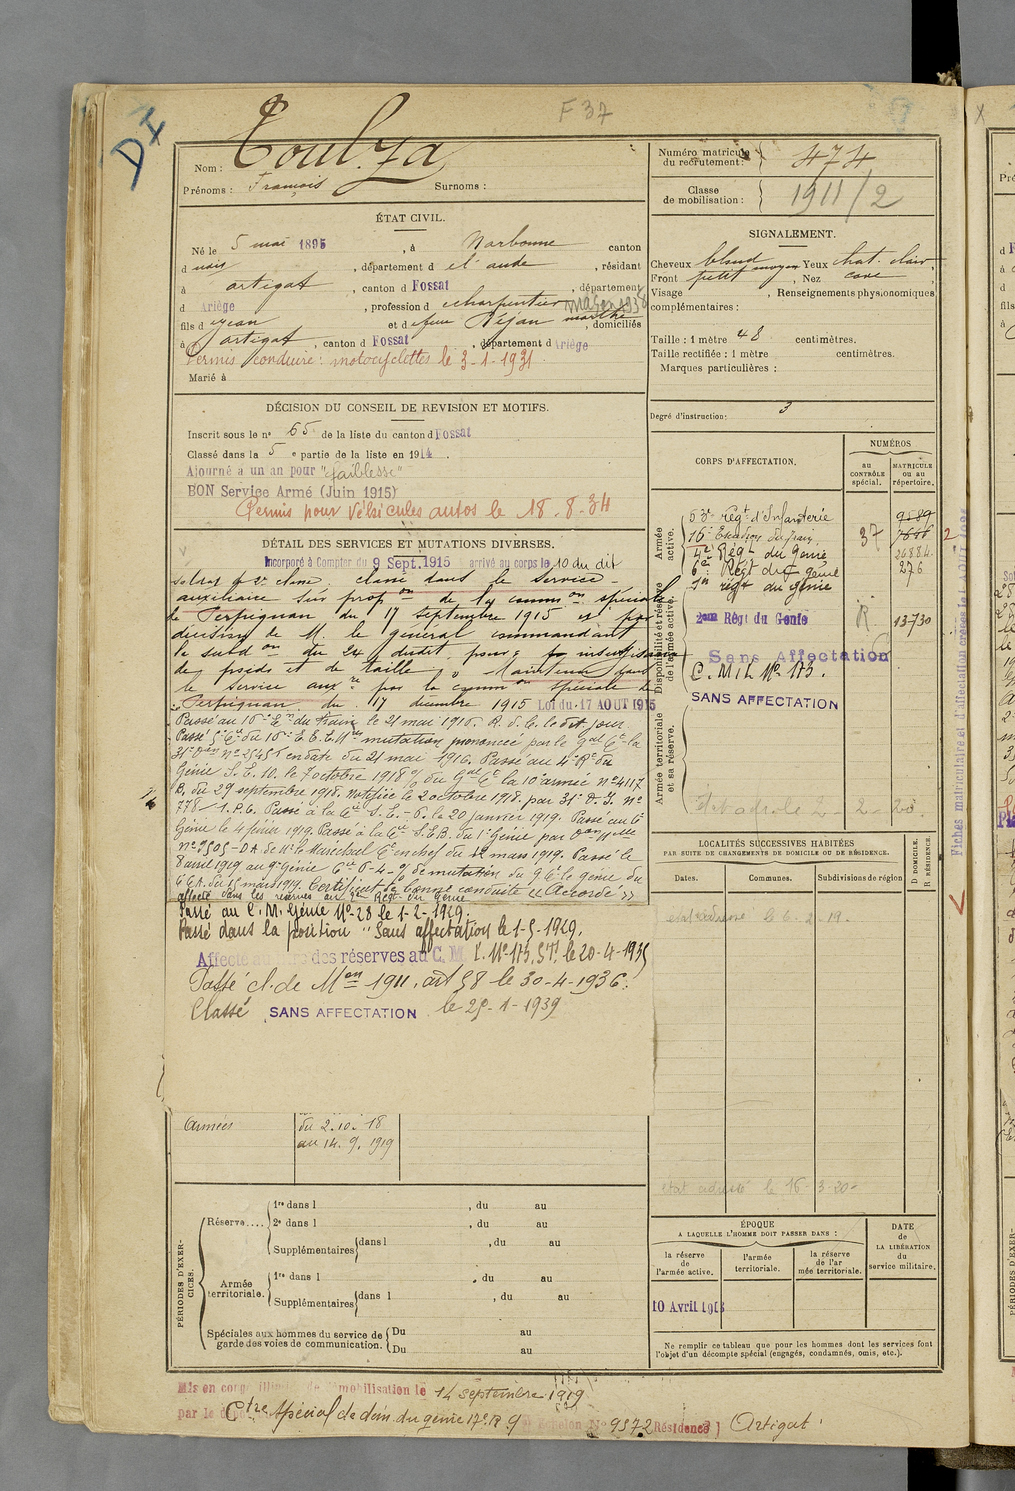 DI
F 37
Nom : Toulza
Prénoms : François Surnoms :
Numéro matricule du recrutement : 474
Classe de mobilisation : 1911/2
ÉTAT CIVIL.
Né le 5 mai 1895, à Narbonne canton
d nois, département d e l'aude, résidant
à artigat, canton d Fossat, département
d Ariège, profession d charpentier maçon 1938
fils d Jean et d feue Réjan marthe, domiciliés
à artigat, canton d Fossat, département d Ariège
Permis conduire : motocyclettes le 3-1-1931
Marié à
SIGNALEMENT.
Cheveux blond moyen Yeux chat. clair
Front petit, Nez cave
Visage, Renseignements physionomiques
complémentaires :
Taille : 1 mètre 48 centimètres.
Taille rectifiée : 1 mètre centimètres.
Marques particulières :
Degré d'instruction : 3
DÉCISION DU CONSEIL DE REVISION ET MOTIFS.
Inscrit sous le no 65 de la liste du canton d Fossat
Classé dans la 5 e partie de la liste en 1914.
Ajourné à un an pour "faiblesse"
BON Service Armé (Juin 1915)
Permis pour Véhicules autos le 18-8-34
DÉTAIL DES SERVICES ET MUTATIONS DIVERSES.
Incorporé à Compter du 9 Sept. 1915 arrivé au corps le 10 du dit
soldat de 2e classe. classé dans le service
auxiliaire sur propon de la common spéciale
de Perpignan du 17 septembre 1915 et par
décision de M. le général commandant
la subdon du 24 dudit pour : insuffisance
de poids et de taille. Maintenu dans
le service auxre par la common spéciale de
Perpignan du 17 décembre 1915 Loi du 17 AOUT 1915
Passé au 16e En du train le 21 mai 1916. R. d. C. le dit jour.
Passé 5e Cie du 16e E. E. E. Mes mutation prononcée par le Gal Ct la
31e Don No 2545 T en date du 21 mai 1916. Passé au 4e Rt du
Génie S. E. 10. le 7 octobre 1918 % du Gal Ct la 10e armée No 4117
B. du 29 septembre 1918. notifiée le 2 octobre 1918. par 31e D. I. No
778-1. P. C. Passé à la Cie S. E. - P. le 20 janvier 1919. Passé au 6e
Génie le 4 février 1919. Passé à la Cie S.E.B. du 1er Génie par
No 9505-DA de Mr le Maréchal Ct en chef du 12 mars 1919. Passé le
8 avril 1919 au 9e Génie Cie P-4-% de mutation du Gl Ct le génie du
G.C.A. du 15 mars 1919. Certificat de bonne conduite "Accordé"
affecté dans les réserves au 2e Régt du génie
Passé au C. M. Génie No 28 le 1-2-1929.
Passé dans la position "Sans affectation le 1-5-1929.
Affecté des réserves au C. M. I. No 173, ST. le 20-4-1935
Passé cl. de Mon 1911, art 58 le 30-4-1936.
Classé SANS AFFECTATION le 25-1-1939
Armées du 2. 10. 18
au 14. 9. 1919
CORPS D'AFFECTATION.
NUMÉROS
AU CONTRÔLE spécial.
MATRICULE ou au répertoire.
Armée active.
53e régt d'Infanterie 9589
16e Escadron du train 37 7666 2
4e Régt du Génie 26884
6e Régt du génie 276
1er régt du Génie
Disponibilité et réserve de l'armée active.
2eme Régt du Génie R. 13730
Sans Affectation
C. M. I. No 173.
SANS AFFECTATION
Armée territoriale et sa réserve.
Etat adr. le 2-2-20
LOCALITÉS SUCCESSIVES HABITÉES
PAR SUITE DE CHANGEMENTS DE DOMICILE OU DE RÉSIDENCE.
Dates. Communes. Subdivisions de région D DOMICILE. R RÉSIDENCE.
etat adressé le 6-2-19.
etat adressé le 16-3-20
PÉRIODES D'EXERCICES.
Réserve.... 1re dans l, du au
2e dans l, du au
Supplémentaires dans l, du au
Armée territoriale. 1re dans l, du au
Supplémentaires dans l, du au
Spéciales aux hommes du service de garde des voies de communication. Du au
Du au
ÉPOQUE
A LAQUELLE L'HOMME DOIT PASSER DANS :
la réserve de l'armée active.
l'armée territoriale.
la réserve de l'armée territoriale.
DATE de LA LIBÉRATION du service militaire.
10 Avril 1918
Ne remplir ce tableau que pour les hommes dont les services font
l'objet d'un décompte spécial (engagés, condamnés, omis, etc.).
Mis en congé illimité de démobilisation le 14 septembre 1919
par le dépôt Ctre spécial de dém. du génie 17e R 9e échelon No 9572 Résidence Artigat